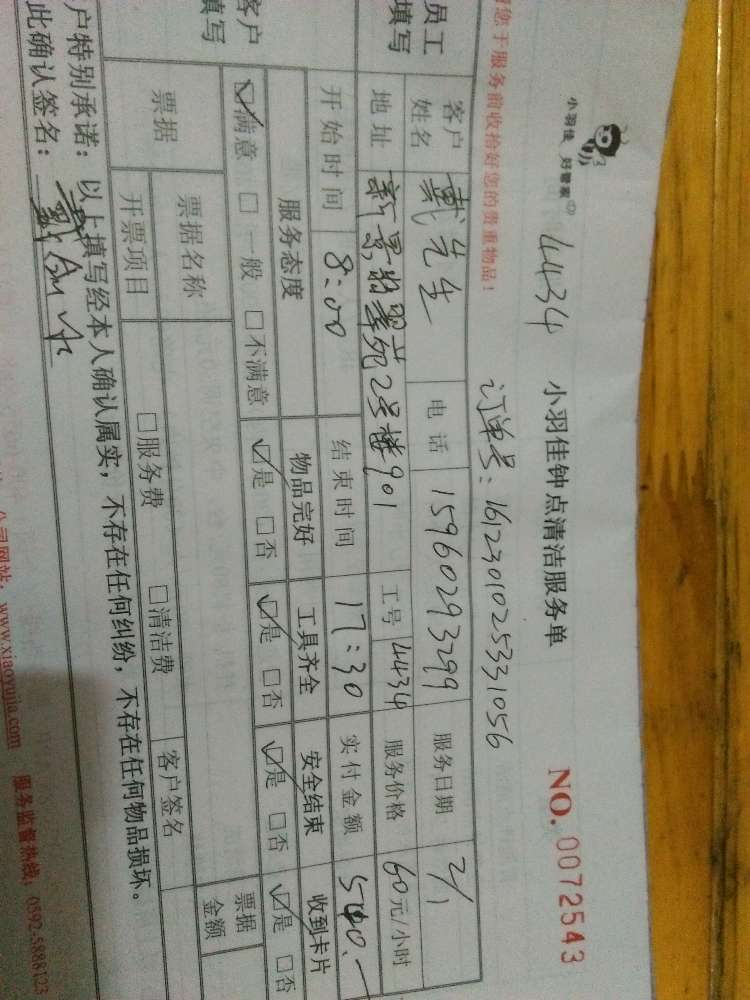 小羽佳 好管家
4434 小羽佳钟点清洁服务单 NO. 0072543
订单号：1612301025331056
您于服务前收拾好您的贵重物品！
员工填写
客户姓名 戴先生 电话 15960293299 服务日期 2/1
地址 新景翡翠苑2号楼901 工号 4434 服务价格 60元/小时
开始时间 8:00 结束时间 17:30 实付金额 540.-
客户填写
服务态度 物品完好 工具齐全 安全结束 收到卡片
☑满意 □一般 □不满意 ☑是 □否 ☑是 □否 ☑是 □否 ☑是 □否
票据 票据名称 票据金额
开票项目 □服务费 □清洁费 客户签名
户特别承诺：以上填写经本人确认属实，不存在任何纠纷，不存在任何物品损坏。
此确认签名：
公司网站：www.xiaoyujia.com 服务监督热线：0592-5888123